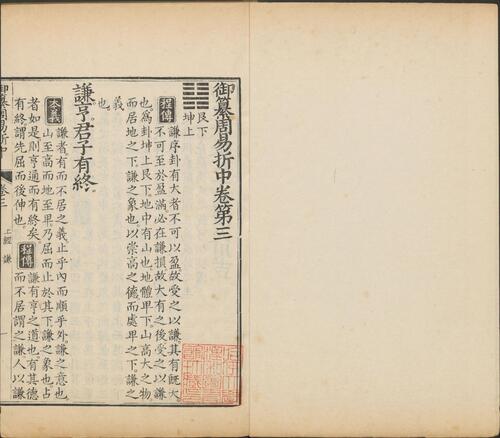 御纂周易折中卷第三
艮下
坤上
程傳 謙序卦有大者不可以盈故受之以謙其有旣大
不可至於盈滿必在謙損故大有之後受之以謙
也爲卦坤上艮下地中有山也地體卑下山高大之物
而居地之下謙之象也以崇高之德而處卑之下謙之
義也
謙亨君子有終
本義 謙者有而不居之義止乎內而順乎外謙之意也
山至高而地至卑乃屈而止於其下謙之象也占
者如是則亨通而有終矣
有終謂先屈而後伸也
程傳 謙有亨之道也有其德
而不居謂之謙人以謙
御纂周易折中
卷三
上經 謙
一